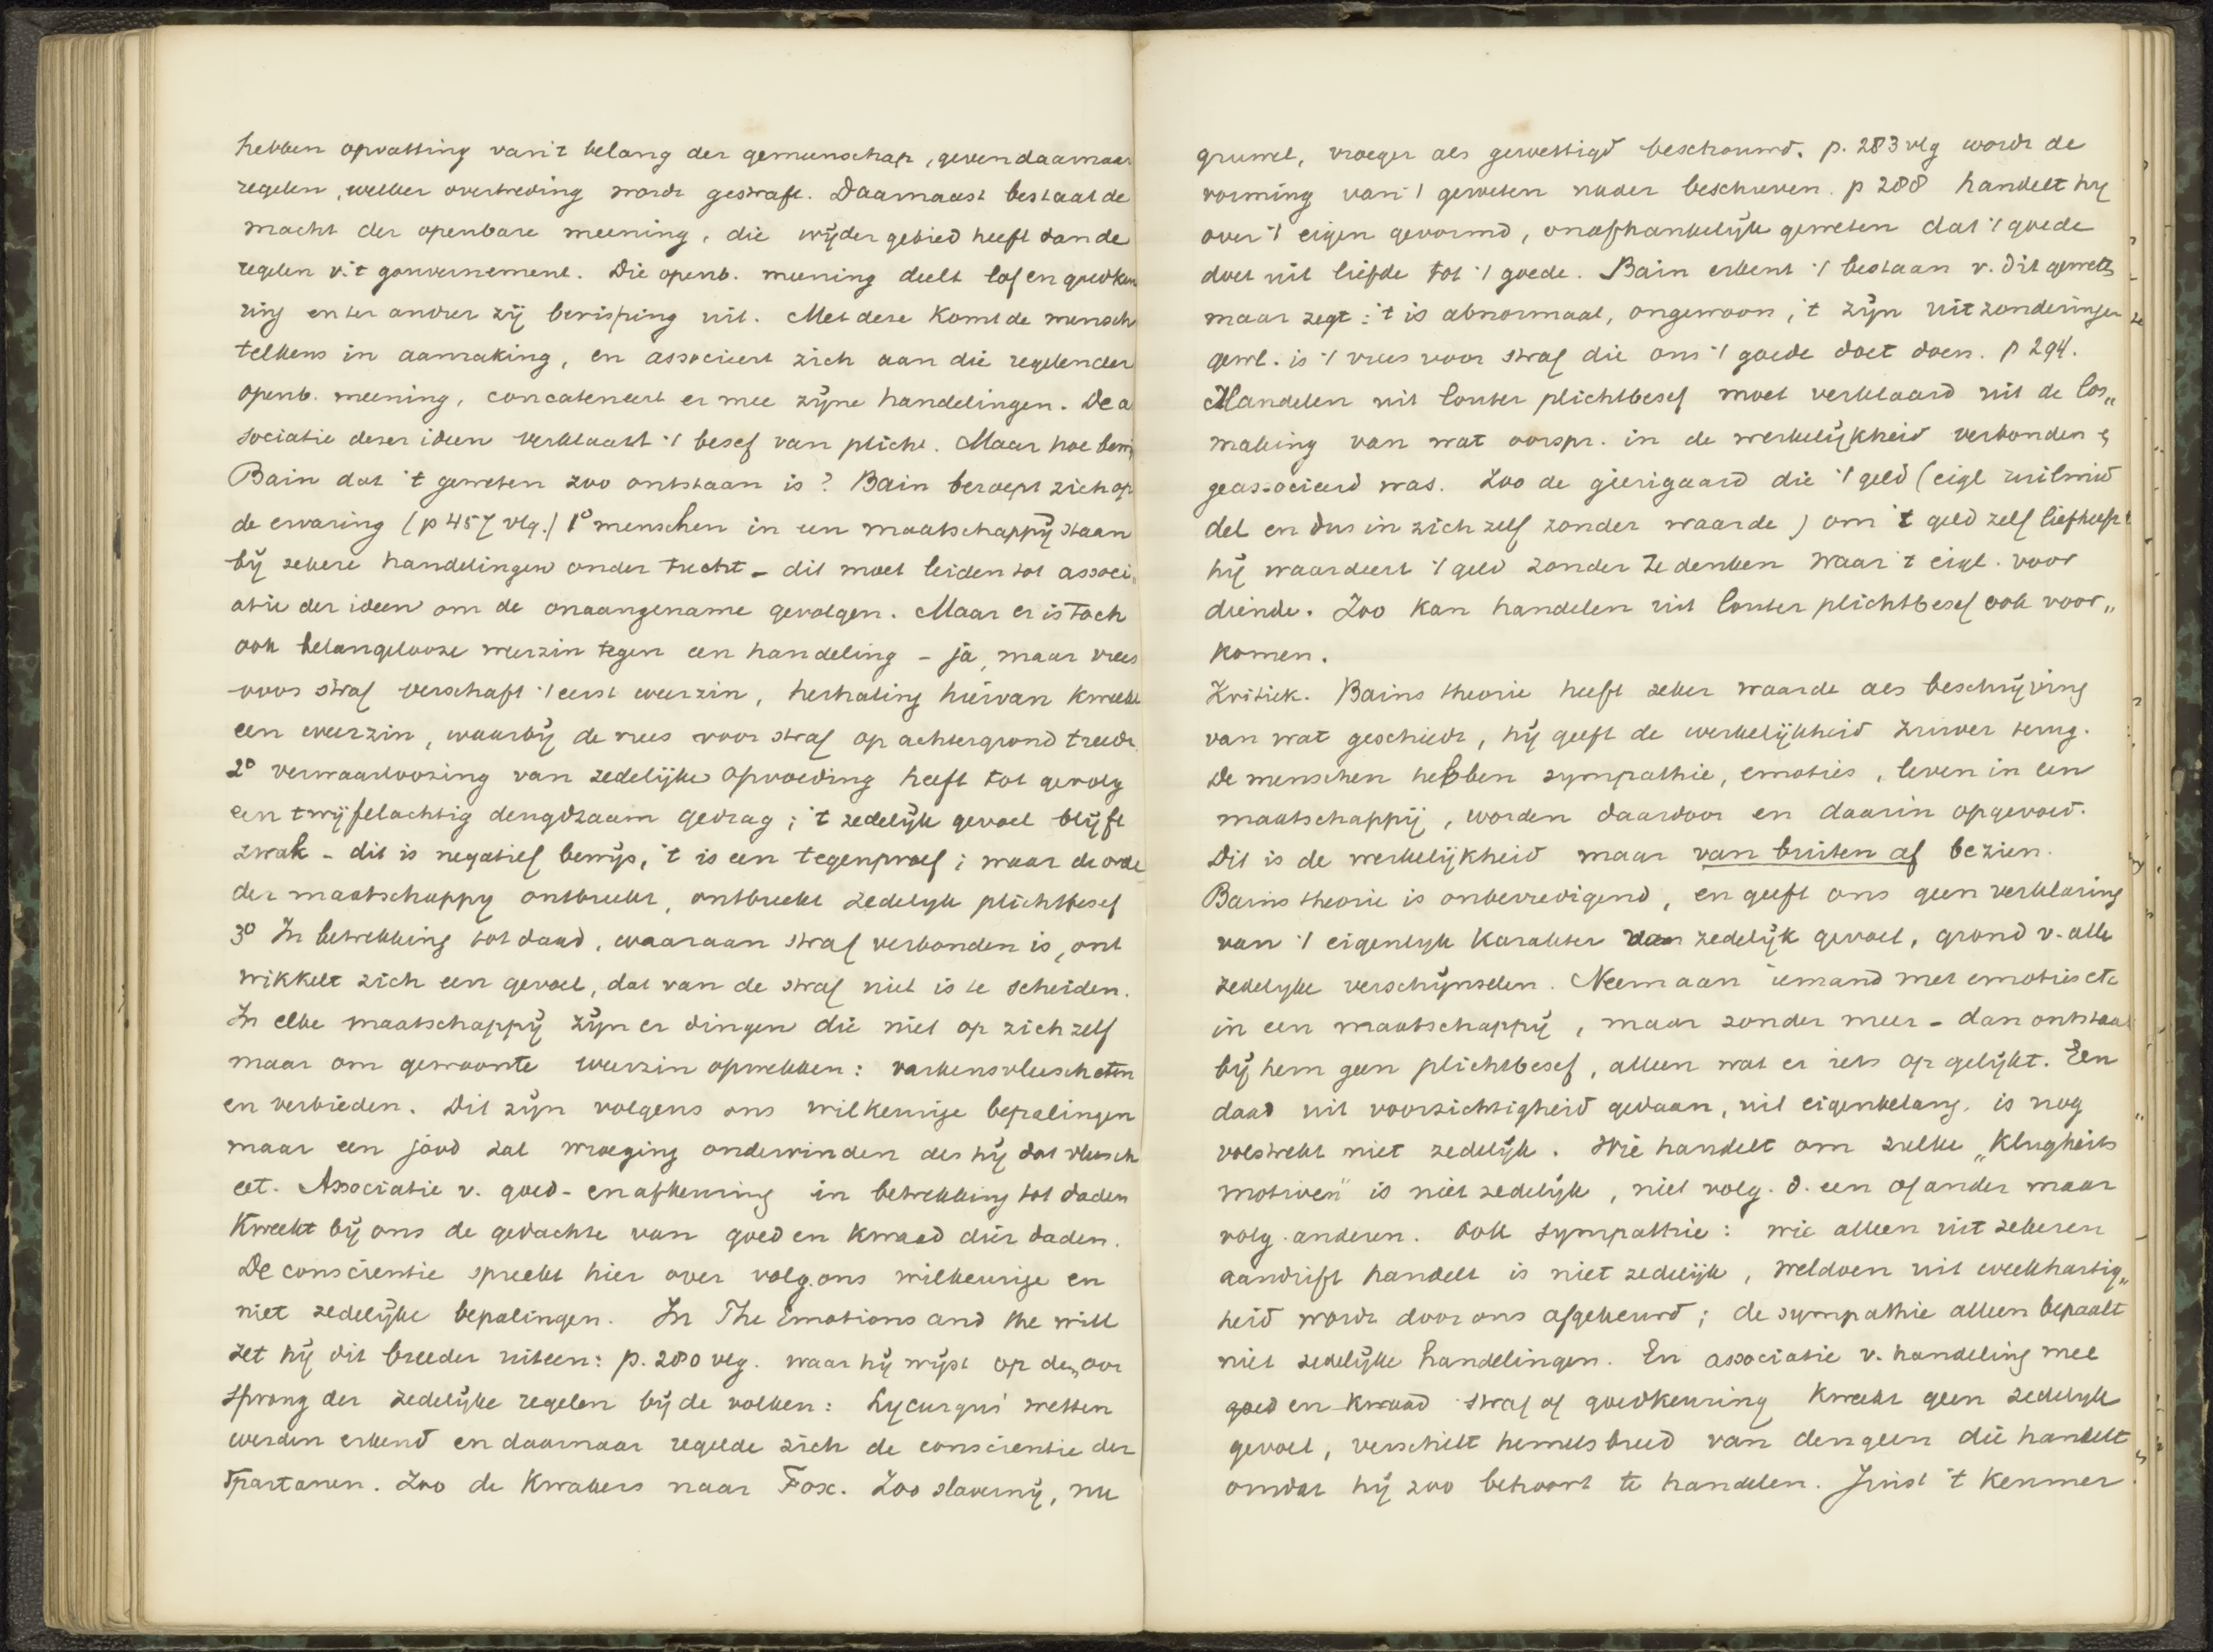 hebben opvatting van 't belang der gemeenschap, geven daarnaar
regelen, welker overtreding wordt gestraft. Daarnaast bestaat de
macht der openbare meening, die wijder gebied heeft dan de
regelen v. 't gouvernement. Die openb. meening deelt lof en goedkeu
ring en ter andrer zij berisping uit. Met deze komt de mensch
telkens in aanraking, en associeert zich aan die regelen der
openb. meening, concateneert er mee zijne handelingen. De a
sociatie dezer ideen verklaart 't besef van plicht. Maar hoe bewij
Bain dat 't geweten zoo ontstaan is? Bain beroept zich op
de ervaring (p 457 vlg.) 1° menschen in een maatschappij staan
bij zekere handelingen onder tucht - dit moet leiden tot associ„
atie der ideen om de onaangename gevolgen. Maar er is toch
ook belangelooze weerzin tegen een handeling - ja, maar vrees
voor straf verschaft 't eerst weerzin, herhaling hiervan kweekt
een weerzin, waarbij de vrees voor straf op achtergrond treedt.
2° verwaarloozing van zedelijke opvoeding heeft tot gevolg
een twijfelachtig deugdzaam gedrag; 't zedelijk gevoel blijft
zwak - dit is negatief bewijs, 't is een tegenproef; waar de orde
der maatschappy ontbreekt, ontbreekt zedelyk plichtbesef
3° In betrekking tot daad, waaraan straf verbonden is, ont
wikkelt zich een gevoel, dat van de straf niet is te scheiden.
In elke maatschappij zijn er dingen die niet op zich zelf
maar om gewoonte weerzin opwekken: varkensvleesch eten
en verbieden. Dit zijn volgens ons wilkeurige bepalingen
maar een jood zal wroeging ondervinden als hij dat vleesch
eet. Associatie v. goed- en afkeuring in betrekking tot daden
kweekt bij ons de gedachte van goed en kwaad dier daden.
De conscientie spreekt hier over volg. ons wilkeurige en
niet zedelijke bepalingen. In The Emotions and the will
zet hij dit breeder uiteen: p. 280 vlg. waar hij wijst op den oor
sprong der zedelijke regelen bij de volken: Lycurgus' wetten
werden erkend en daarnaar regelde zich de conscientie der
Spartanen. Zoo de Kwakers naar Fox. Zoo slavernij, nu
gruwel, vroeger als gewettigd beschouwd. p. 283 vlg wordt de
vorming van 't geweten nader beschreven. p 288 handelt hij
over 't eigen gevormd, onafhankelijk geweten dat 't goede
doet uit liefde tot 't goede. Bain erkent 't bestaan v. dit geweten
maar zegt: 't is abnormaal, ongewoon, 't zijn uitzonderingen
gewl. is 't vrees voor straf die ons 't goede doet doen. p 294.
Handelen uit louter plichtbesef moet verklaard uit de los„
making van wat oorspr. in de werkelijkheid verbonden &
geassocieerd was. Zoo de gierigaard die 't geld (eigl ruilmid
del en dus in zich zelf zonder waarde) om 't geld zelf liefheeft
hij waardeert 't geld zonder te denken waar 't eigl. voor
diende. Zoo kan handelen uit louter plichtbesef ook voor„
komen.
Kritiek. Bains theorie heeft zeker waarde als beschrijving
van wat geschiedt, hij geeft de werkelijkheid zuiver terug.
De menschen hebben sympathie, emoties, leven in een
maatschappij, worden daardoor en daarin opgevoed.
Dit is de werkelijkheid maar van buiten af bezien.
Bains theorie is onbevredigend, en geeft ons geen verklaring
van 't eigenlyk karakter van zedelijk gevoel, grond v. alle
zedelyke verschijnselen. Neem aan iemand met emoties etc
in een maatschappij, maar zonder meer - dan ontstaat
bij hem geen plichtbesef, alleen wat er iets op gelijkt. Een
daad uit voorzichtigheid gedaan, uit eigenbelang. is nog
volstrekt niet zedelijk. Wie handelt om zulke „Klugheits
motiven" is niet zedelijk, niet volg. d. een of ander maar
volg. anderen. Ook sympathie: wie alleen uit zekeren
aandrift handelt is niet zedelijk, weldoen uit weekhartig„
heid wordt door ons afgekeurd; de sympathie alleen bepaalt
niet zedelijke handelingen. En associatie v. handeling mee
goed en kwaad straf of goedkeuring kweekt geen zedelyk
gevoel, verschilt hemelsbreed van dengeen die handelt
omdat hij zoo behoort te handelen. Juist 't kenmer